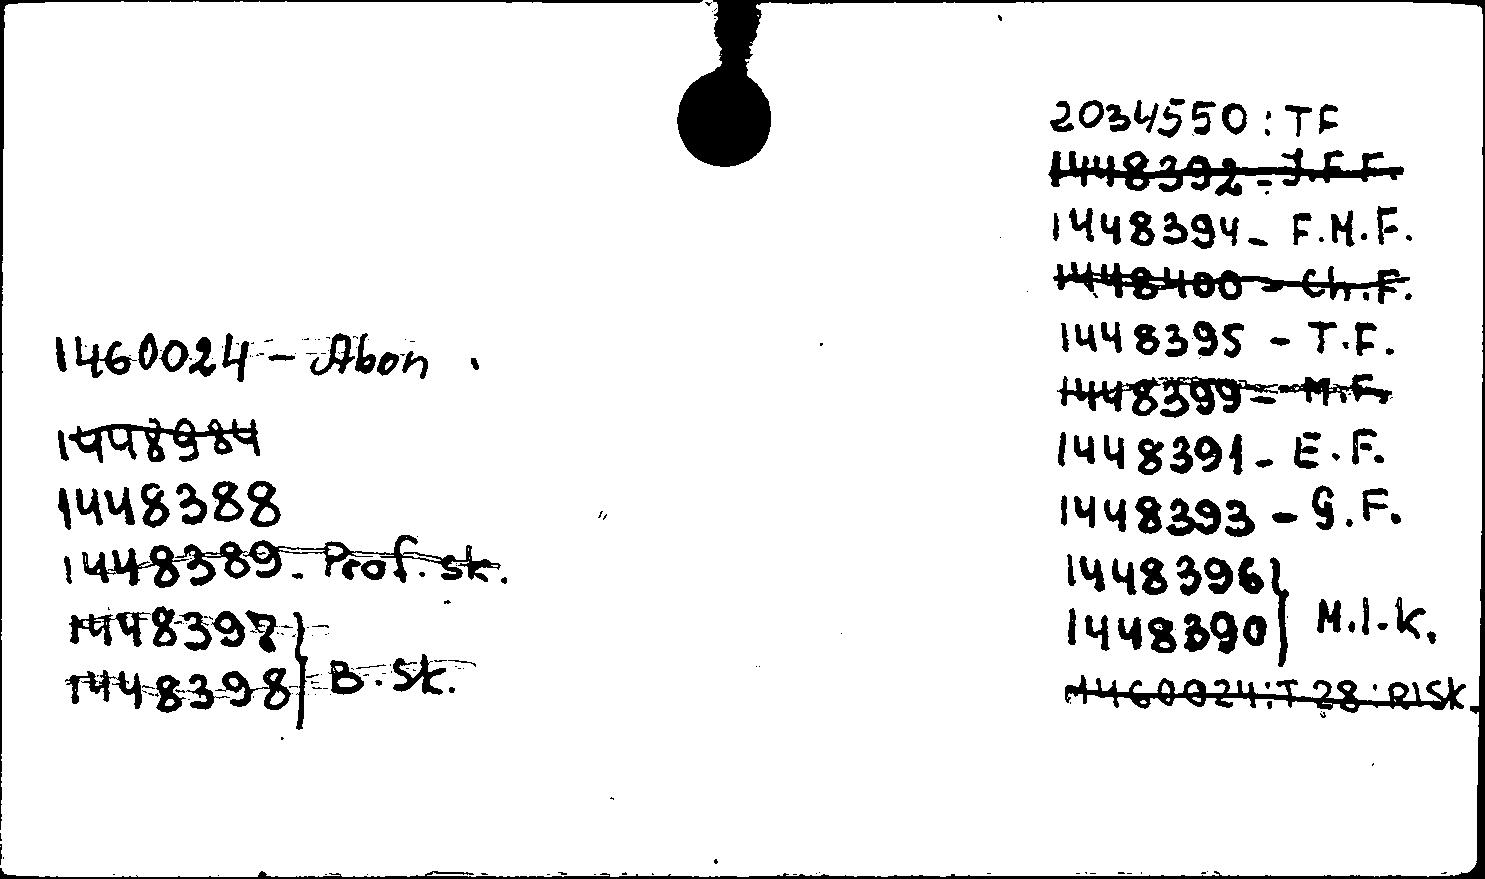 1460024 - Abon.
1448984
1448388
1448389 - Prof. sk.
1448397
1448398 } B. sk.
2034550 : TF
1448392 - J.F.F.
1448394 - F.M.F.
1448400 - Ch.F.
1448395 - T.F.
1448399 - M.F.
1448391 - E.F.
1448393 - G.F.
1448396
1448390 } M.I.K.
1460024 : T 28 : RISK.